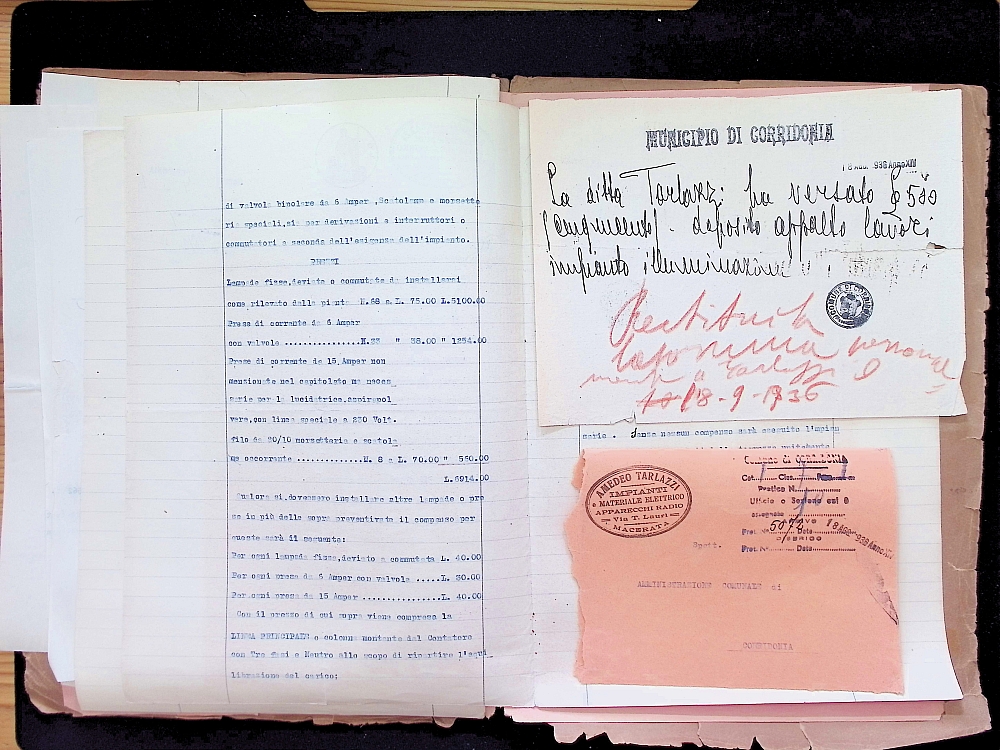 di valvola bipolare da 6 Amper ,Scatolame e morsette
rie speciali,sia per derivazioni e interruttori o
commutatori a seconda dell'esigenza dell'impianto.
PREZZI
Lampade fisse,deviate o commutate da installarsi
come rilevato dalla pianta N.68 a L. 75.00 L.5100.00
Prese di corrente da 6 Amper
con valvole ................N.33 " 38.00 " 1254.00
Prese di corrente da 15 Amper non
menzionate nel capitolato ma neces_
sarie per la lucidatrice,aspirapol_
vere,con linea speciale a 230 Volt.
filo da 20/10 morsetteria e scatola_
me occorrente ..............N. 8 a L. 70.00 " 560.00
L.6914.00
Qualora si dovessero installare altre lampade o pre_
se in più delle sopra preventivate il compenso per
queste sarà il seguente:
Per ogni lampada fissa,deviata o commutata L. 40.00
Per ogni presa da 6 Amper con valvola .....L. 30.00
Per ogni presa da 15 Amper ................L. 40.00
Con il prezzo di cui sopra viene compreso la
LINEA PRINCIPALE o colonna montante dal Contatore
con Tre fasi e Neutro allo scopo di ripartire l'equi_
librazione del carico;
MUNICIPIO DI CORRIDONIA
18 AGO. 936 Anno XIV
La ditta Tarlazzi ha versato £ 500
(cinquecento) - deposito appalto lavori
impianto illuminazione
COMUNE DI CORRIDONIA
Restituita
la somma personal_
mente a Tarlazzi il
18-9-1936
serie. Senza nessun compenso sarà eseguito l'impian
AMEDEO TARLAZZI
IMPIANTI
e MATERIALE ELETTRICO
APPARECCHI RADIO
Via T. Lauri
MACERATA
Comune di CORRIDONIA
Cat. Clas.
Pratica N.
Ufficio o Sezione cui è
assegnato
Prot. N. 5074 Data 18 AGO. 936 Anno XIV
Prot. N. Data
Spett.
AMMINISTRAZIONE COMUNALE di
CORRIDONIA